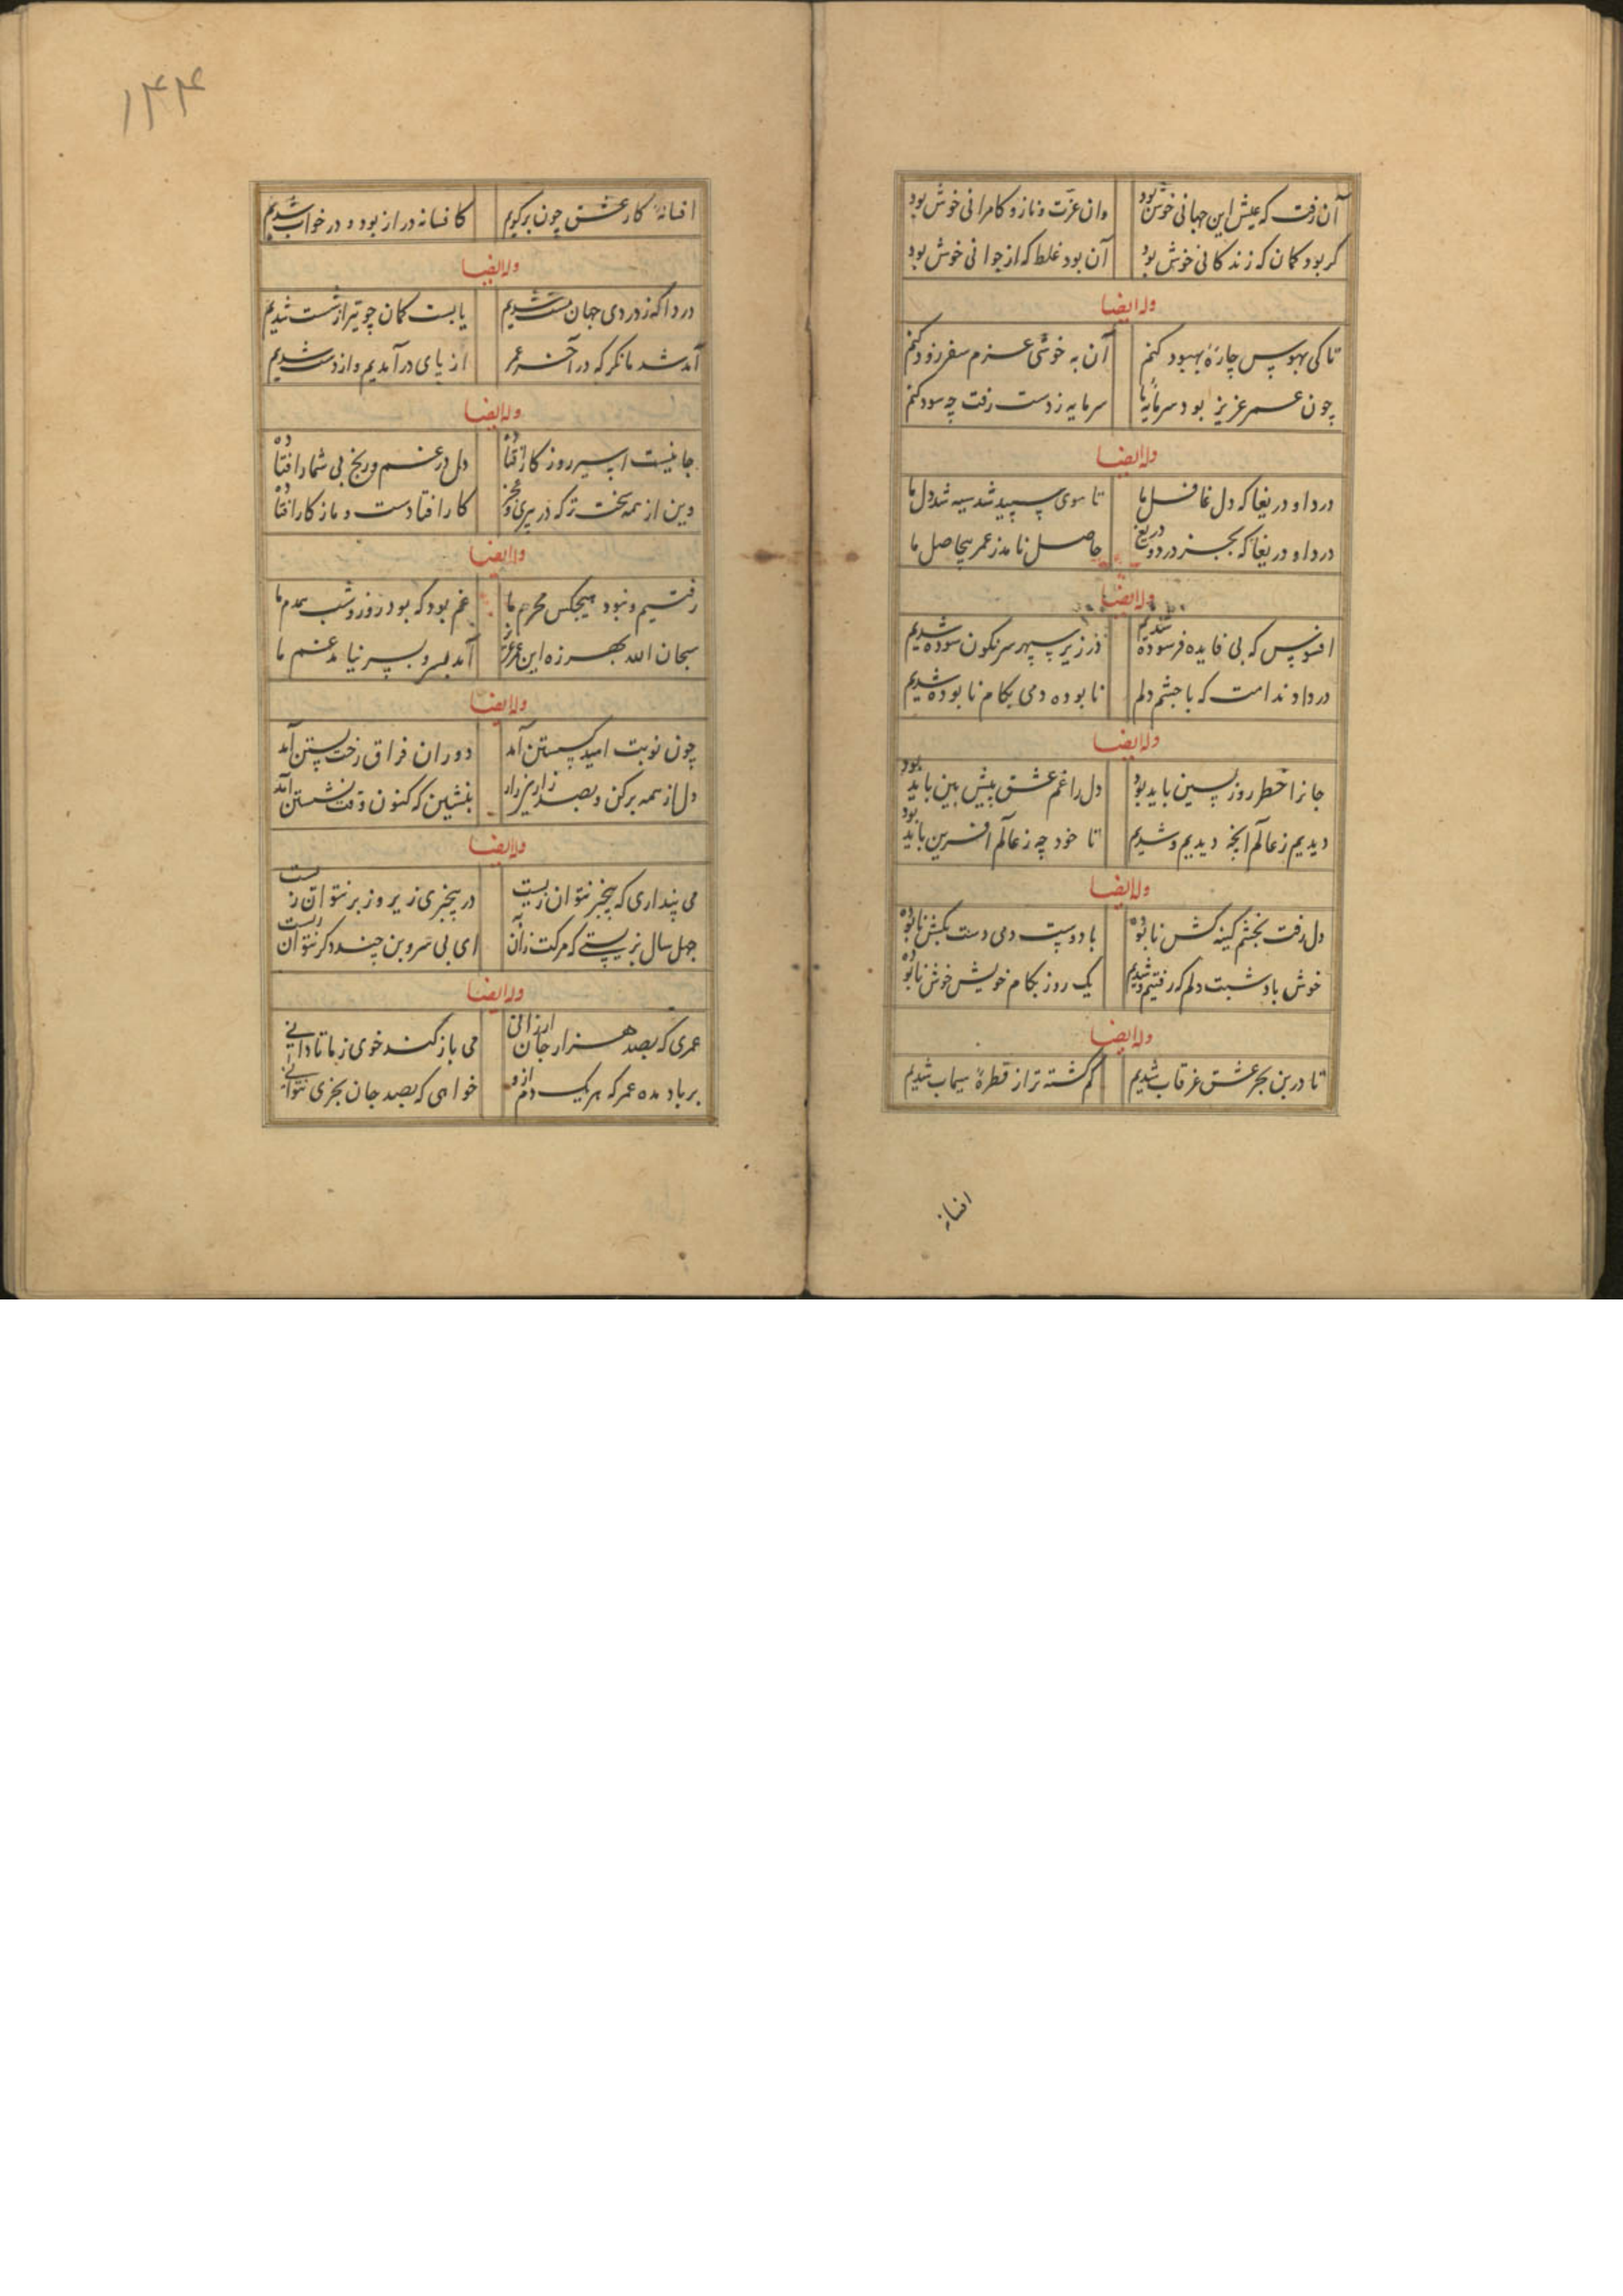 آن رفت که عیش این جهانی خوش بود وان عزت و ناز و کامرانی خوش بود
کر بود کمان که زندکانی خوش بود آن بود غلط که از جوانی خوش بود
وله ایضا
تا کی بهوس چارهٔ بهبود کنم آن به خوشی عزم سفر زود کنم
چون عمر عزیز بود سرمایهٔ ما سرمایه ز دست رفت چه سود کنم
وله ایضا
دردا و دریغا که دل غافل ما تا موی سپید شد سیه شد دل ما
دردا و دریغا که بجز درد و دریغ حاصل نامد ز عمر بیحاصل ما
وله ایضا
افسوس که بی فایده فرسوده شدیم در زیر سپهر سرنکون سوده شدیم
دردا و ندامت که تا چشم زدیم نابوده دمی بکام نابوده شدیم
وله ایضا
جانرا خطر روز پسین باید بود دل را غم عشق پیش بین باید بود
دیدیم ز عالم آنچه دیدیم و شدیم تا خود چه ز عالم آفرین باید بود
وله ایضا
دل رفت بخشم کینه کش نابوده با دوست دمی دست بکش نابوده
خوش باد شبت دلم که رفتیم و شدیم یک روز بکام خویش خوش نابوده
وله ایضا
تا در بن بحر عشق غرقاب شدیم کم کشته تر از قطرهٔ سیماب شدیم
افسانه
۱۴۴
افسانهٔ کار عشق چون برکویم کافسانه دراز بود و در خواب شدیم
وله ایضا
دردا که ز دردی جهان مست شدیم یا بست کمان چو تیر از شست شدیم
آمد شد ما نکر که در آخر عمر از پای در آمدیم و از دست شدیم
وله ایضا
جانیست اسیر روزکار افتاده دل در غم و رنج بی شمار افتاده
وین از همه سخت تر که در پیری و عجز کار افتادست و ما ز کار افتاده
وله ایضا
رفتیم و نبود هیچکس محرم ما غم بود که بود روز و شب همدم ما
سبحان الله بهرزه این عمر عزیز آمد بسر و بسر نیامد غم ما
وله ایضا
چون نوبت امید کسستن آمد دوران فراق رخت بستن آمد
دل از همه برکن و بصد زاری زار بنشین که کنون وقت نشستن آمد
وله ایضا
می پنداری که بیخبر نتوان زیست در بیخبری زیر و زبر نتوان زیست
چهل سال بزیستی که مرکت زان به ای بی سر و بن چند دکر نتوان زیست
وله ایضا
عمری که بصد هزار جان ارزانی می باز کند خوی ز ما تا دانی
بر باد مده عمر که هر یک دم ازو خواهی که بصد جان بخری نتوانی